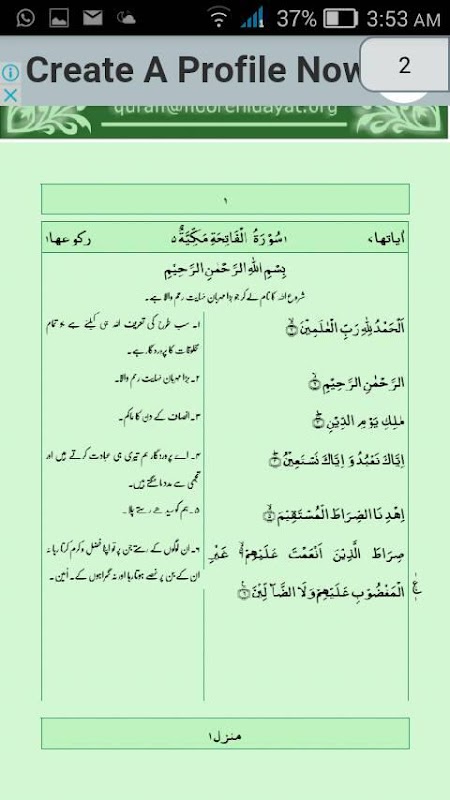 37% 3:53 AM
Create A Profile Now
2
quran@noorehidayat.org
۱
اٰیاتها، ۱سُوْرَةُ الْفَاتِحَةِ مَكِّيَّةٌ ۵ ركوعها۱
بِسْمِ اللهِ الرَّحْمٰنِ الرَّحِيْمِ
شروع اللہ کا نام لے کر جو بڑا مہربان نہایت رحم والا ہے۔
اَلْحَمْدُ لِلّٰهِ رَبِّ الْعٰلَمِيْنَ ۙ﴿۱﴾
۱۔ سب طرح کی تعریف اللہ ہی کیلئے ہے جو تمام
مخلوقات کا پروردگار ہے۔
الرَّحْمٰنِ الرَّحِيْمِ ۙ﴿۲﴾
۲۔ بڑا مہربان نہایت رحم والا۔
مٰلِكِ يَوْمِ الدِّيْنِ ؕ﴿۳﴾
۳۔ انصاف کے دن کا حاکم۔
اِيَّاكَ نَعْبُدُ وَ اِيَّاكَ نَسْتَعِيْنُ ؕ﴿۴﴾
۴۔ اے پروردگار ہم تیری ہی عبادت کرتے ہیں اور
تجھی سے مدد مانگتے ہیں۔
اِهْدِنَا الصِّرَاطَ الْمُسْتَقِيْمَ ۙ﴿۵﴾
۵۔ ہم کو سیدھے رستے چلا۔
صِرَاطَ الَّذِيْنَ اَنْعَمْتَ عَلَيْهِمْ ۙ۬ غَيْرِ
الْمَغْضُوْبِ عَلَيْهِمْ وَلَا الضَّآلِّيْنَ ﴿۶﴾ ع
۶۔ ان لوگوں کے رستے جن پر تو اپنا فضل و کرم کرتا رہا نہ
ان کے جن پر غصے ہوتا رہا اور نہ گمراہوں کے۔ آمین۔
منزل۱